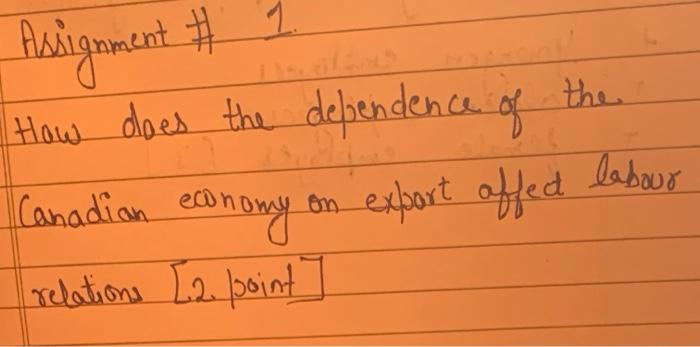 Assignment # 1.
How does the dependence of the
Canadian economy on export affect labour
relations [2. point]